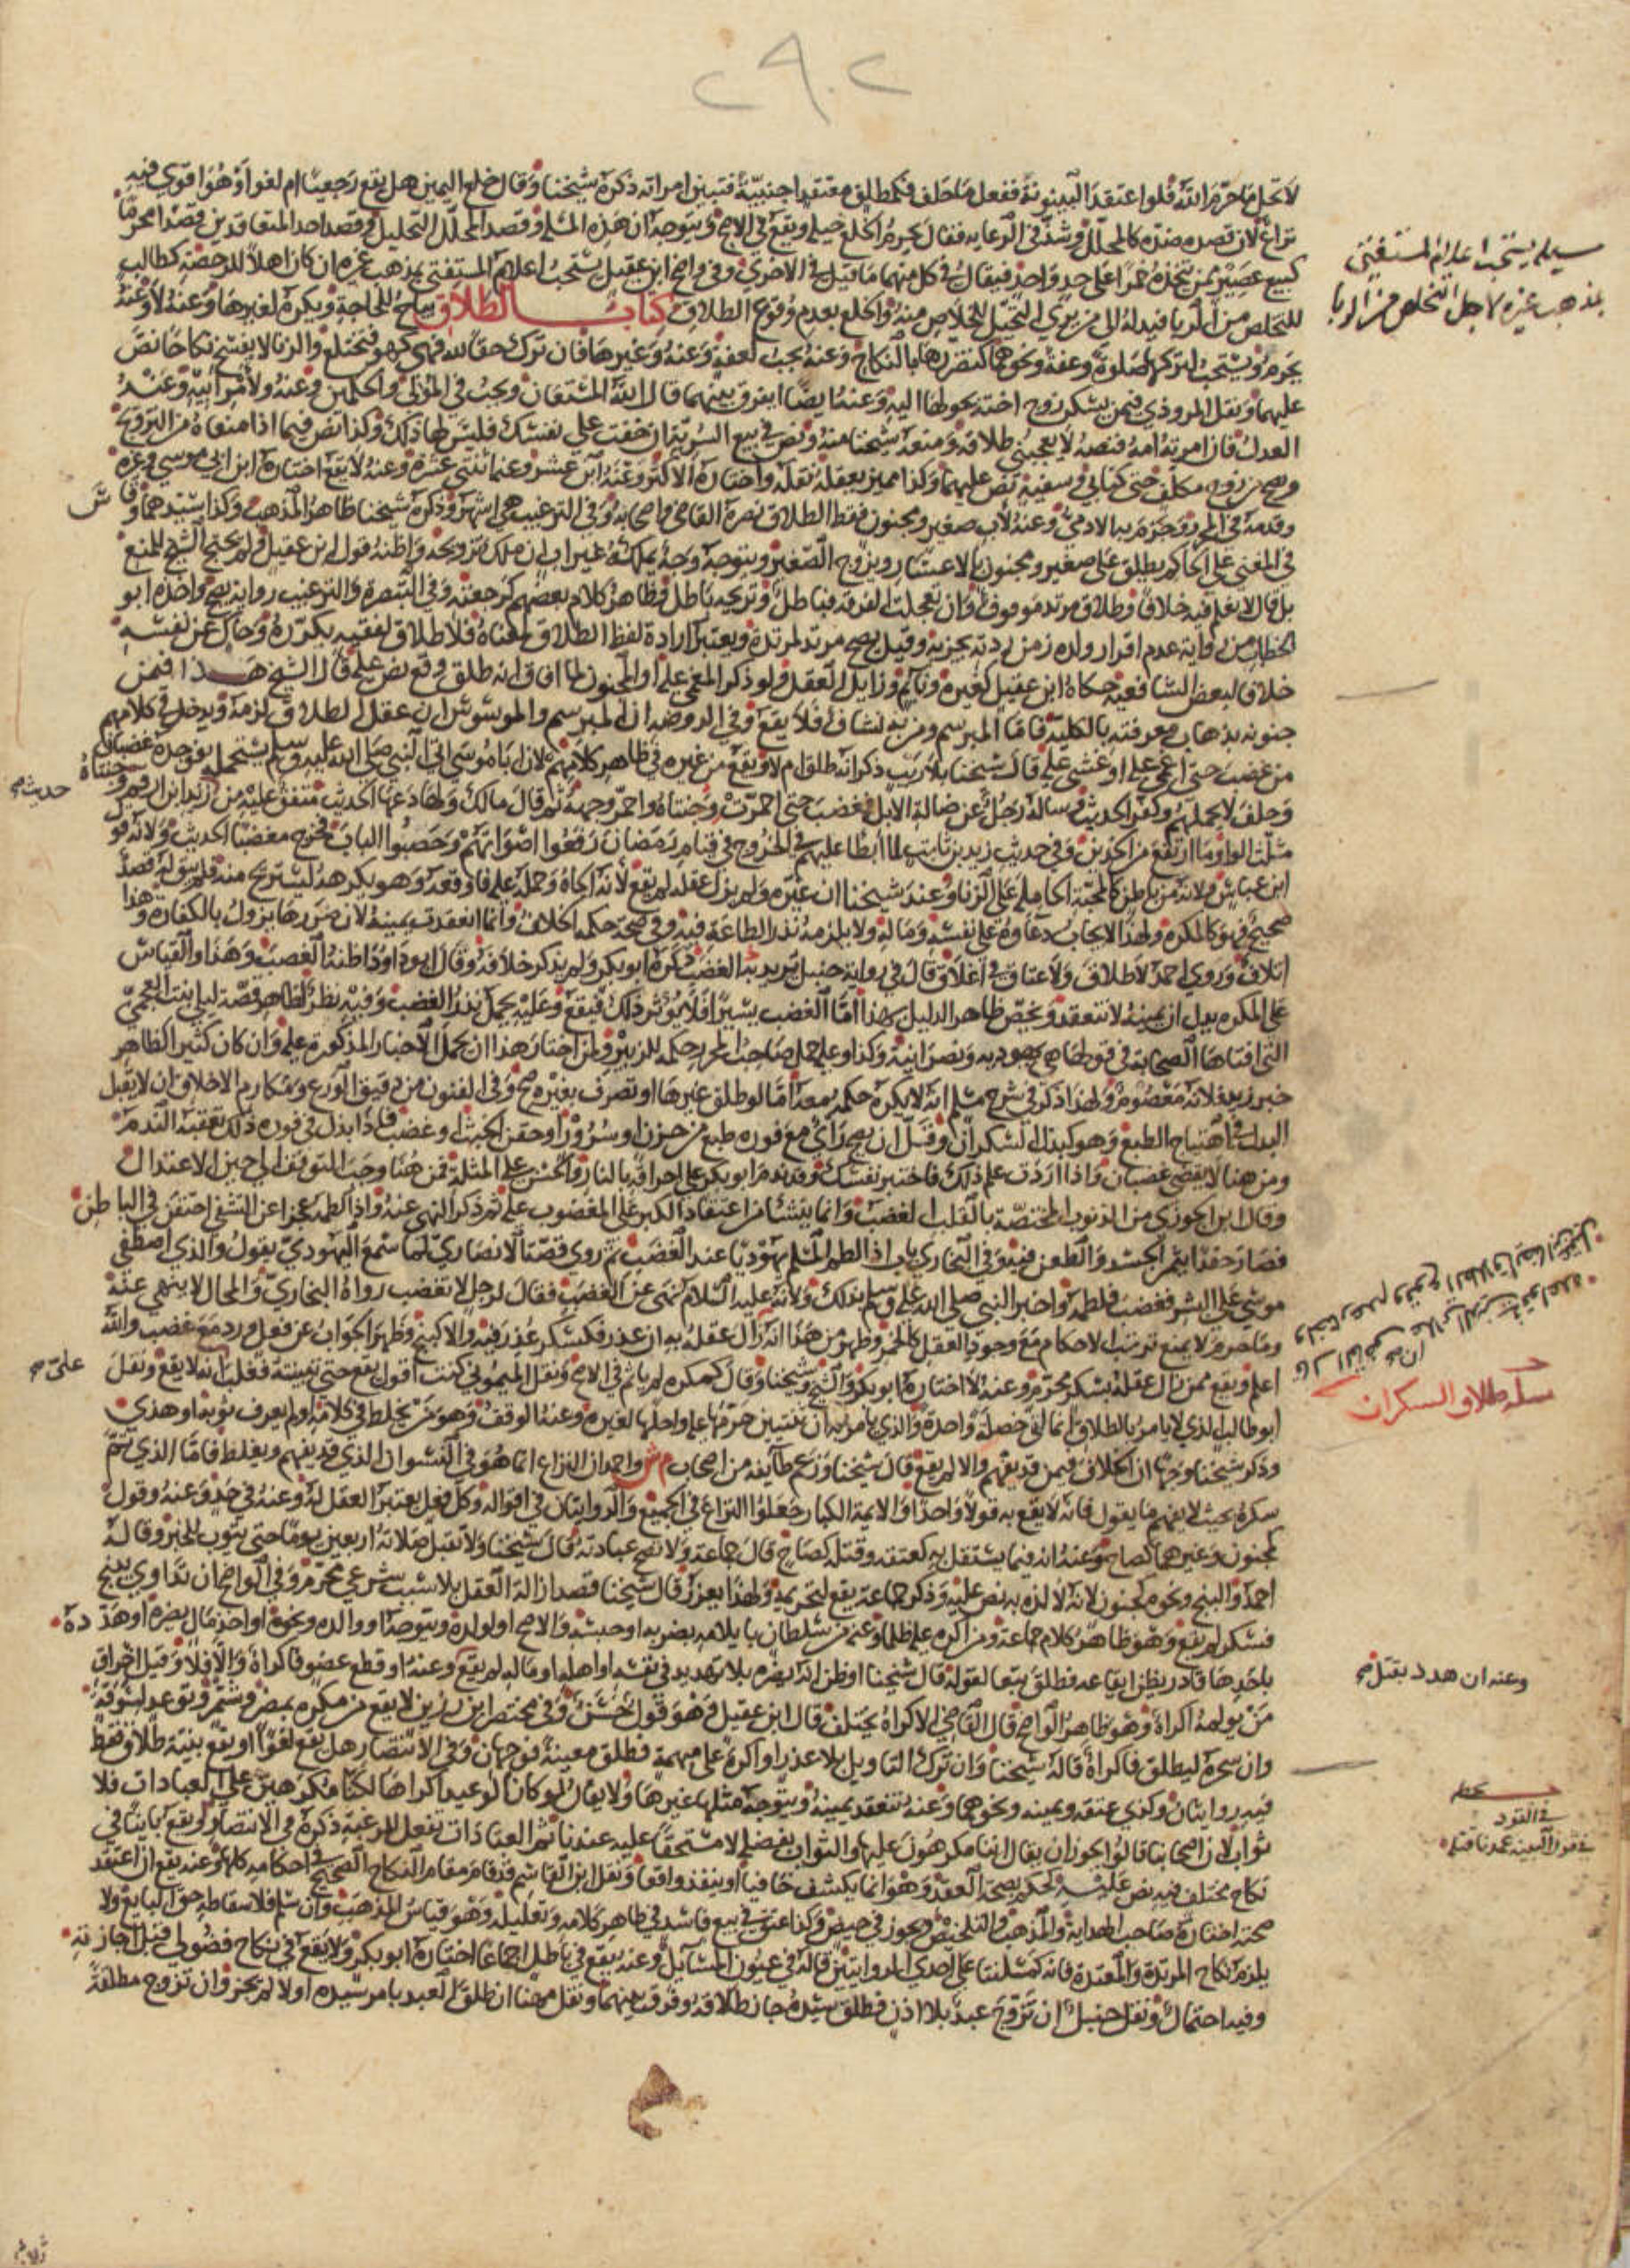 ٢٩٠٢
لا تحل ما حرم الله فلو اعتقد البينونة ففعل ما حلف فكمطلق معتقدا اجنبية فتبين امراته ذكره شيخنا وقال خلع اليمين هل يقع رجعيا ام لغوا وهو اقوى فيه
نزاع لان قصده ضده كالمحلل وشذ في الرعاية فقال يحرم الخلع حيلة ويقع في الاصح ويتوجه ان هذه المسئلة وقصد المحلل التحليل وقصد احد المتعاقدين قصدا محرما
كبيع عصير ممن يتخذه خمرا على حد واحد فيقال في كل منهما ما قيل في الاخرى وفي واضح ابن عقيل يستحب اعلام المستفتي بمذهب غيره ان كان اهلا للرخصة كطالب
للتخلص من الربا فيدله الى من يرى التحيل للخلاص منه والخلع بعدم وقوع الطلاق كتاب الطلاق يباح للحاجة ويكره لغيرها وعنه لا وعنه
يحرم ويستحب لتركها صلوة وعفة ونحوهما كتضررها بالنكاح وعنه يجب لعفة وعنه وغيرها فان ترك حقا لله فهي كهو فتختلع والزنا لا يفسخ نكاحا نص
عليهما ونقل المروذي فيمن يسكر زوج اخته يحولها اليه وعنه ايضا ايفرق بينهما قال الله المستعان ويجب في المولي والحكمين وعنه ولامر ابيه وعنه
العدل فان امرته امه فنصه لا يعجبني طلاقه ومنعه شيخنا منه ونص في بيع السرية ان خفت على نفسك فليس لها ذلك وكذا نص فيما اذا منعاه من التزويج
ويصح من زوج مكلف حتى كتابي وسفيه نص عليهما وكذا مميز يعقله نقله واختاره الاكثر وعنه ابن عشر وعنه اثنتي عشرة وعنه لا يقع اختاره ابن ابي موسى وغيره
وقدمه في المحرر وجزم به الادمي وعنه لاب صغير ومجنون فقط الطلاق نصره القاضي واصحابه وفي الترغيب هي اشهر وذكره شيخنا ظاهر المذهب وكذا سيدهما وقاس
في المغني على الحاكم يطلق على صغير ومجنون بالاعسار ويزوج الصغير ويتوجه وجه يملكه غير اب ان ملك تزويجه واظنه قول ابن عقيل ولم يحتج الشيخ للمنع
بل قال لا نعلم فيه خلافا وطلاق مرتد موقوف وان تعجلت الفرقة فباطل وتزويجه باطل وظاهر كلام بعضهم كرجعته وفي التبصرة والترغيب رواية يصح واخذه ابو
الخطاب من رواية عدم اقرار ولده زمن ردته بجزية وقيل يصح مرتد لمرتدة ويعتبر ارادة لفظ الطلاق لمعناه فلا طلاق لفقيه يكرره وحاك عن نفسه
خلافا لبعض الشافعية حكاه ابن عقيل كغيره ونائم وزايل العقل ولو ذكر المغمى عليه او المجنون لما افاق انه طلق وقع نص عليه قال الشيخ هذا فيمن
جنونه بذهاب معرفته بالكلية فاما المبرسم ومن به نشاف فلا يقع وفي الروضة ان المبرسم والموسوس ان عقل الطلاق لزمه ويدخل في كلامهم
من غضب حتى اغمي عليه او غشي عليه قال شيخنا بلا ريب ذكر انه طلق ام لا ويقع من غيره في ظاهر كلامهم لان ابا موسى اتى النبي صلى الله عليه وسلم يستحمله فوجده غضبانا
وحلف لا يحملهم وكفر الحديث وساله رجل عن ضالة الابل فغضب حتى احمرت وجنتاه واحمر وجهه ثم قال مالك ولها دعها الحديث متفق عليه من
مثلث الواو ما ارتفع من الخدين وفي حديث زيد بن ثابت لما ابطا عليهم في الخروج في قيام رمضان رفعوا اصواتهم وحصبوا الباب فخرج مغضبا الحديث ولانه قول
ابن عباس ولانه من باطن كالمحبة الحاملة على الزنا وعند شيخنا ان غيره ولم يزل عقله لم يقع لانه الجاه وحمله عليه فاوقعه وهو يكرهه ليستريح منه فلم يبق له قصد
صحيح فهو كالمكره ولهذا لا يجاب دعاؤه على نفسه وماله ولا يلزمه نذر الطاعة فيه وفي صحة حكمه الخلاف وانما انعقدت يمينه لان ضررها يزول بالكفارة وهذا
اتلاف وروى احمد لا طلاق ولا عتاق في اغلاق قال في رواية حنبل يريد به الغضب ذكره ابو بكر ولم يذكر خلافه وقال ابو داود اظنه الغضب وهذا والقياس
على المكره يدل ان يمينه لا تنعقد ويخص ظاهر الدليل بهذا اما الغضب يسيرا فلا يؤثر ذلك فيقع وعليه يحمل نذر الغضب وفيه نظر لظاهر قصة ليلى بنت العجمي
التي افتاها الصحابة في قولها هي يهودية ونصرانية وكذا وعليه حمل صاحب المحرر حكمه للزبير ولمن اختار هذا ان يحمل الاخبار المذكورة عليه وان كان كثير الظاهر
خبر زيد فلانه معصوم ولهذا ذكر في شرح مسلم انه لا يكره حكمه معه اما لو طلق غيرها او تصرف بغيره صح وفي الفنون من دقيق الورع ومكارم الاخلاق ان لا يقبل
البذل في اهتياج الطبع وهو كبذل السكران وقل ان يصح راي مع فوره طبع من حزن او سرور او حقن الخبث او غضب فاذا بذل في فوره ذلك تعقبه الندم
ومن هنا لا يقضي غضبان واذا اردت علم ذلك فاختبر نفسك وقد ندم ابو بكر على احراقه بالنار والحسن على المثلة فمن هنا وجب التوقف الى حين الاعتدال
وقال ابن الجوزي من الذنوب المختصة بالقلب الغضب وانما ينشا من اعتقاد الكبر على المغضوب عليه ثم ذكر النهي عنه واذا كظمه عجزا عن التشفي احتقن في الباطن
فصار حقدا يثمر الحسد والطعن فيه وفي البخاري باب اذا لطم المسلم يهوديا عند الغضب ثم روى قصة الانصاري لما سمع اليهودي يقول والذي اصطفى
موسى على البشر فغضب فلطمه واخبر النبي صلى الله عليه وسلم بذلك ولانه عليه السلام نهى عن الغضب فقال لرجل لا تغضب رواه البخاري والمحال لا ينهى عنه
وما حرم لا يمنع ترتب الاحكام مع وجود العقل كالخمر وظهر من هذا انه ان زال عقله به ان عذر فكسكر عذر فيه والا كبنج وظهر الجواب عن فعل ورد مع غضب والله
اعلم ويقع ممن زال عقله بسكر محرم وعنه لا اختاره ابو بكر والشيخ وشيخنا وقال كمكره لم ياثم في الاصح ونقل الميموني كنت اقول يقع حتى تبينته فغلب انه لا يقع ونقل
ابو طالب الذي لا يامر بالطلاق انما اتى خصلة واحدة والذي يامر به اتى ثنتين حرمها عليه واحلها لغيره وعنه الوقف وهو من يخلط في كلامه او لم يعرف ثوبه او هذى
وذكر شيخنا وجها ان الخلاف فيمن قد يفهم والا لم يقع قال شيخنا وزعم طائفة من اصحاب م ش واحمد ان النزاع انما هو في النشوان الذي قد يفهم ويغلط فاما الذي تم
سكره بحيث لا يفهم ما يقول فانه لا يقع به قولا واحدا والايمة الكبار جعلوا النزاع في الجميع والروايتان في اقواله وكل فعل يعتبر العقل له وعنه في حد وعنه وقول
كمجنون وغيرهما كصاح وعنه انه فيما يستقل به كعتقه وقتله كصاح قال جماعة ولا تصح عبادته قال شيخنا ولا تقبل صلاته اربعين يوما حتى يتوب للخبر وقاله
احمد والبنج ونحوه كجنون لانه لا لذة به نص عليه وذكر جماعة يقع لتحريمه ولهذا يعزر قال شيخنا قصد ازالة العقل بلا سبب شرعي محرم وفي الواضح ان تداوى ببنج
فسكر لم يقع وهو ظاهر كلام جماعة ومن اكره عليه ظلما وعنه من سلطان بايلامه بضربه او حبسه والاصح او لولده ويتوجه او والده ونحوه او اخذ مال يضره او هدده
باحدها قادر يظن ايقاعه فطلق تبعا لقوله قال شيخنا او ظن انه يضره بلا تهديد في نفسه او اهله او ماله لم يقع وعنه او قطع عضو فاكراه والا فلا وقيل احراق
من يولمه اكراه وهو ظاهر الواضح قال القاضي الاكراه يختلف قال ابن عقيل وهو قول حسن وفي مختصر ابن رزين لا يقع من مكره بمض وشتم وتوعد لسوقة
وان سحره ليطلق فاكراه قاله شيخنا وان ترك التاويل بلا عذر او اكره على مبهمة فطلق معينة فوجهان وفي الانتصار هل يقع لغوا او يقع بنية طلاق فقط
فيه روايتان وكذي عتقه ويمينه ونحوهما وعنه تنعقد يمينه ويتوجه مثلها غيرها ولا يقال لو كان الوعيد اكراها لكنا مكرهين على العبادات فلا
ثواب لان اصحابنا قالوا يجوز ان يقال اننا مكرهون عليها والثواب بفضله لا مستحقا عليه عندنا ثم العبادات تفعل للرغبة ذكره في الانتصار ويقع باينا في
نكاح مختلف فيه نص عليه كحكم بصحة العقد وهو انما يكشف خافيا او ينفذ واقعا ونقل ابن القاسم قد قام مقام النكاح الصحيح في احكامه كلها وعنه يقع ان اعتقد
صحته اختاره صاحب الهداية والمذهب والتلخيص ويجوز في حيض وكذا عتق في بيع فاسد في ظاهر كلامه وتعليله وهو قياس المذهب وان سلم فلاسقاطه حق البايع ولا
يلزم نكاح المرتدة والمعتدة فانه كمسئلتنا على احدى الروايتين قاله في عيون المسايل وعنه يقع في باطل اجماعا اختاره ابو بكر ولا يقع في نكاح فضولي قبل اجازته
وفيه احتمال ونقل حنبل ان تزوج عبد بلا اذن فطلق سيده جاز طلاقه وفرق بينهما ونقل مهنا ان طلق العبد بامر سيده اولا لم يجز وان تزوج مطلقة
مسئلة يستحب اعلام المستفتي
بمذهب غيره لاجل التخلص من الربا
حديث صح
وجنتاه
على صح
مسئلة طلاق السكران
وعنه ان هدد بقتل صح
في القود